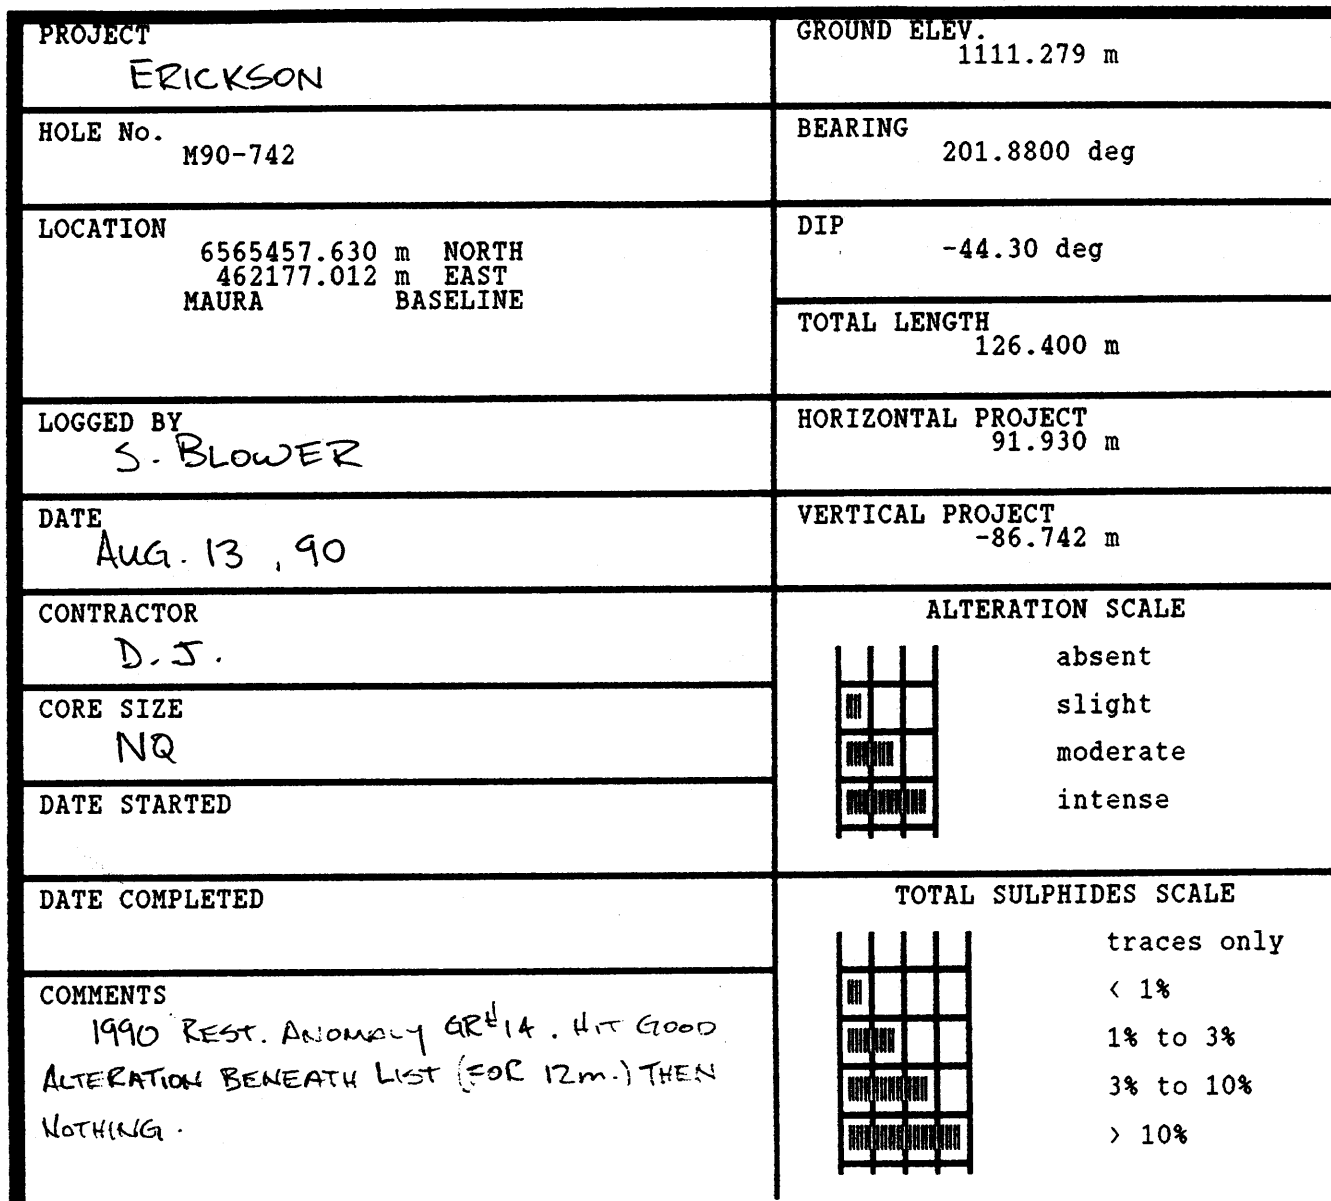 PROJECT
ERICKSON
HOLE No.
M90-742
LOCATION
6565457.630 m NORTH
462177.012 m EAST
MAURA BASELINE
LOGGED BY
S. BLOWER
DATE
AUG. 13, 90
CONTRACTOR
D.J.
CORE SIZE
NQ
DATE STARTED
DATE COMPLETED
COMMENTS
1990 REST. ANOMALY GR#14. HIT GOOD
ALTERATION BENEATH LIST (FOR 12m.) THEN
NOTHING.
GROUND ELEV.
1111.279 m
BEARING
201.8800 deg
DIP
-44.30 deg
TOTAL LENGTH
126.400 m
HORIZONTAL PROJECT
91.930 m
VERTICAL PROJECT
-86.742 m
ALTERATION SCALE
absent
slight
moderate
intense
TOTAL SULPHIDES SCALE
traces only
< 1%
1% to 3%
3% to 10%
> 10%